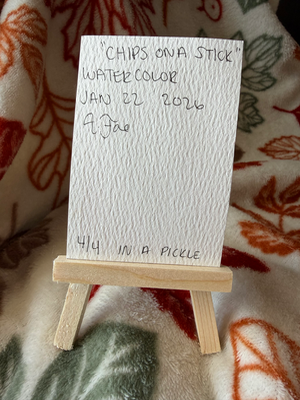 "CHIPS ON A STICK"
WATERCOLOR
JAN 22 2026
4/4 IN A PICKLE